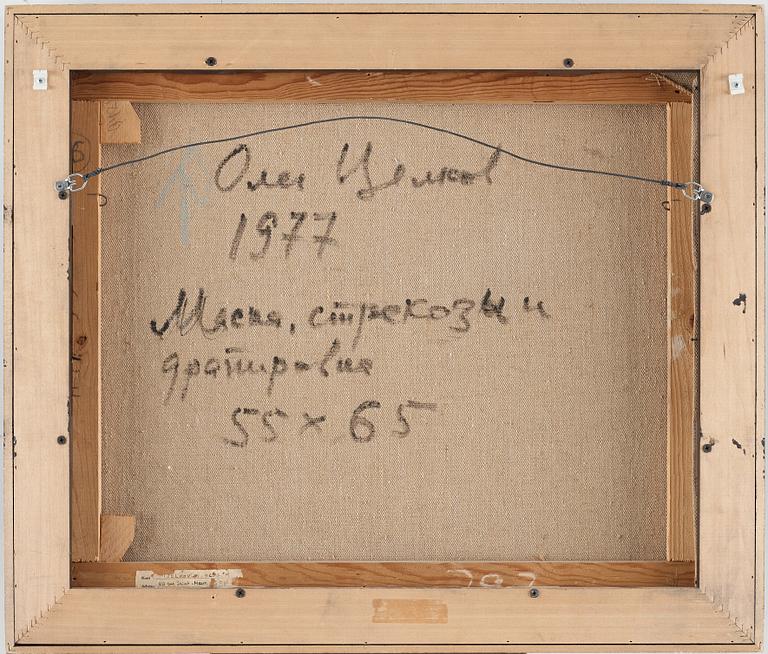 Олег Целков
1977
Маска, стрекозы и
драпировка
55 × 65